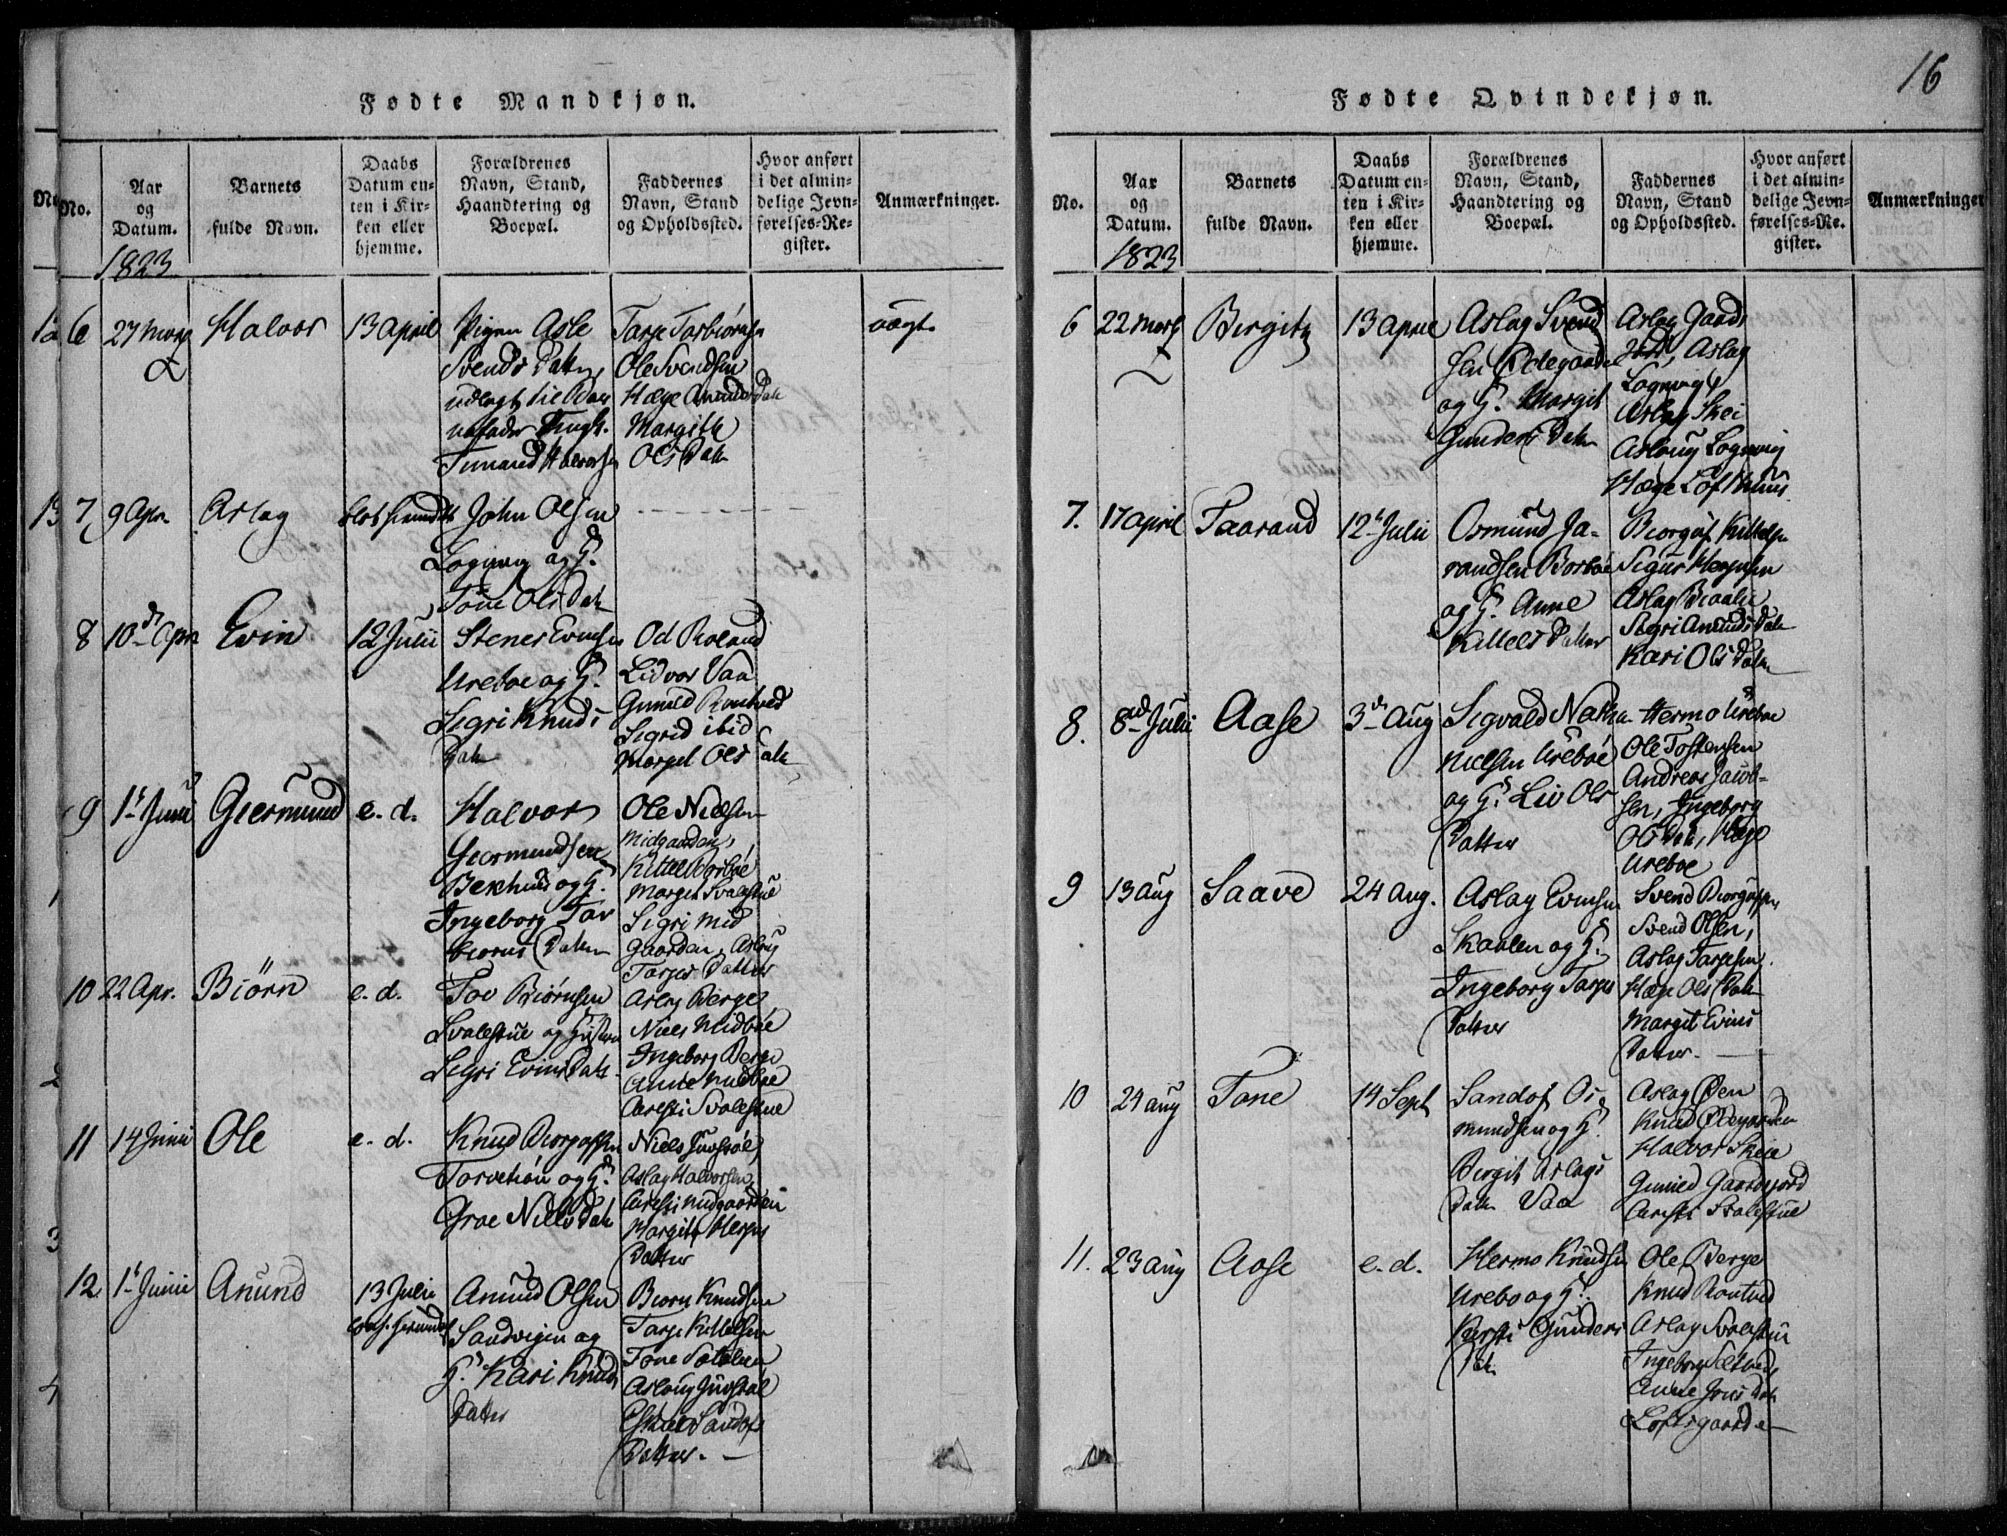 16
Fødte Mandkjøn.
No.
Aar
og
Datum.
1823
Barnets
fulde Navn.
Daabs
Datum en-
ten i Kir-
ken eller
hjemme.
Forældrenes
Navn, Stand,
Haandtering og
Boepæl.
Faddernes
Navn, Stand
og Opholdssted.
Hvor anført
i det almin-
delige Jevn-
førelses-Re-
gister.
Anmærkninger.
6
27 Marz
Halvor
13 april
Pigen Asle
Svends Datter,
udlagt til Bar
nefader Ungk.
Halvorsen
Tarje Torbiörnsen
Ole Svendsen
Hæge Amunds Datt
Margith
Ols Datter
uægt.
7
9 Apr.
Aslag
John Olsen
Lognvig og H.
Tone Ols Datt
8
10de Apr
Evin
12 Julii
Stener Evinsen
Ureboe og H.
Sigri Knuds
Datter
Od Roland
Lidvor Vaa
Gunild Rontved
Sigrid ibid
Margit Ols Datt
9
1t Junii
Giermund
e. d.
Halvor
Giermundsen
Bekhuus og H.
Ingeborg Tov
biorns Datter
Ole Nielsen
Midgaarden,
Kittel Borboe
Margit Svalestue
Sigri Mid
gaarden, Aslaug
Tarjes Datter
10
22 Apr.
Biörn
e. d.
Tov Biörnsen
Svalestue og Hustru
Sigri Evins Datt.
Aslag Berge
Niels Midboe
Ingeborg Berge
Anne Midboe
Kersti Svalestue
11
14 Junii
Ole
e. d.
Knud Biorgufsen
Torvetion og H.
Groe Niels Datt
Niels Juvstöl,
Aslag Halvorsen
Kersti Midgaarden
Margith Herges
Datter
12
1t Junii
Anund
13 Julii
Anund Olsen
Sandvigen og
H. Kari Knuds
Datter
Biorn Knudsen
Tarje Kittelsen
Tone
Aslaug Juvstöl
Sandofs
Datter. —
Fødte Qvindekjøn.
No.
Aar
og
Datum.
1823
Barnets
fulde Navn.
Daabs
Datum en-
ten i Kir-
ken eller
hjemme.
Forældrenes
Navn, Stand,
Haandtering og
Boepæl.
Faddernes
Navn, Stand
og Opholdssted.
Hvor anført
i det almin-
delige Jevn-
førelses-Re-
gister.
Anmærkninger
6
22 Marz
Birgith
13 april
Aslag Svend
sen Ødegaarde
og H. Margit
Gunders Datter
Aslag Gaards
jord, Aslag
Lognvig,
Aslag Skei
Aslaug Lognvig
Hæge Lofthuus
7.
17 april
Taarand
12t Julii
Osmund Ta-
randsen Borboe
og H. Anne
Kittels Datter
Biorguf Kittelsen
Sigur Hergusen
Aslag
Sigri Amunds Datt
Kari Ols Datter
8.
8de Julii
Aase
3de Aug
Sigvald Natha-
nielsen Ureboe
og H. Liv Ols
Datter
Hermo Ureboe
Ole Tostensen
Andreas Jacob-
sen, Ingeborg
Ols Dat, Hæge
Ureboe
9
13 Aug
Saave
24 Aug.
Aslag Evinsen
Skaalen og H.
Ingeborg Tarjes
Datter
Svend Biorgufsen
Svend Olsen,
Aslag Tarjesen.
Hæge Ols Datt
Margit Evins
Datter. —
10
24 aug
Tone
14 Sept
Sandof Os-
mundsen og H.
Birgit Aslags
Datter Vaa
Aslag Øen
Knud Ødegaarden
Halvor Skeie
Gunild Gaardsjord
Kersti Svalestue
11.
23 aug
Aase
e. d.
Hermo Knudsen
Urebo og H.
Kersti Gunders
Datt
Ole Berge
Knud Rontved
Aslag Svalestue
Ingeborg
Anne Jons Datt
Loftsgaarde